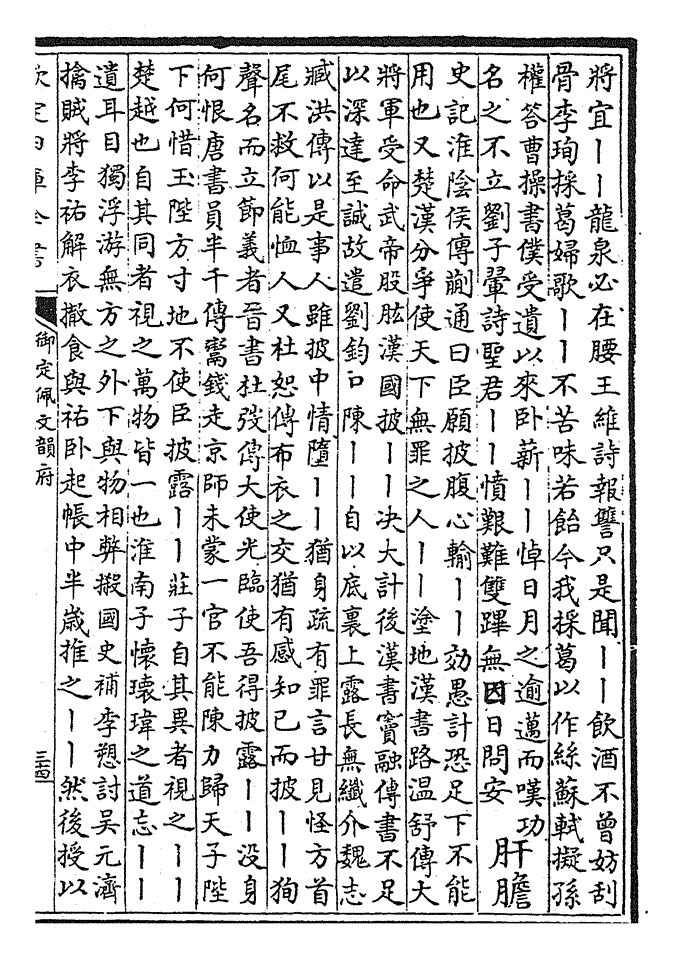 將宜丨丨龍泉必在腰王維詩報讐只是聞丨丨飲酒不曾妨刮
骨李珣採葛婦歌丨丨不苦味若飴今我採葛以作絲蘇軾擬孫
權答曹操書僕受遺以來卧薪丨丨悼日月之逾邁而嘆功
名之不立劉子翬詩聖君丨丨憤艱難雙蹕無因日問安
肝膽
史記淮陰侯傳蒯通曰臣願披腹心輸丨丨効愚計恐足下不能
用也又楚漢分爭使天下無罪之人丨丨塗地漢書路温舒傳大
將軍受命武帝股肱漢國披丨丨决大計後漢書竇融傳書不足
以深達至誠故遣劉鈞口陳丨丨自以底裏上露長無纎介魏志
臧洪傳以是事人雖披中情墮丨丨猶身疏有罪言甘見怪方首
尾不救何能恤人又杜恕傳布衣之交猶有感知己而披丨丨狥
聲名而立節義者晉書杜弢傳大使光臨使吾得披露丨丨没身
何恨唐書員半千傳鬻錢走京師未蒙一官不能陳力歸天子陛
下何惜玉陛方寸地不使臣披露丨丨莊子自其異者視之丨丨
楚越也自其同者視之萬物皆一也淮南子懷瓌瑋之道忘丨丨
遺耳目獨浮游無方之外下與物相弊摋國史補李愬討吳元濟
擒賊將李祐解衣撤食與祐卧起帳中半嵗推之丨丨然後授以
欽定四庫全書
御定佩文韻府
三四